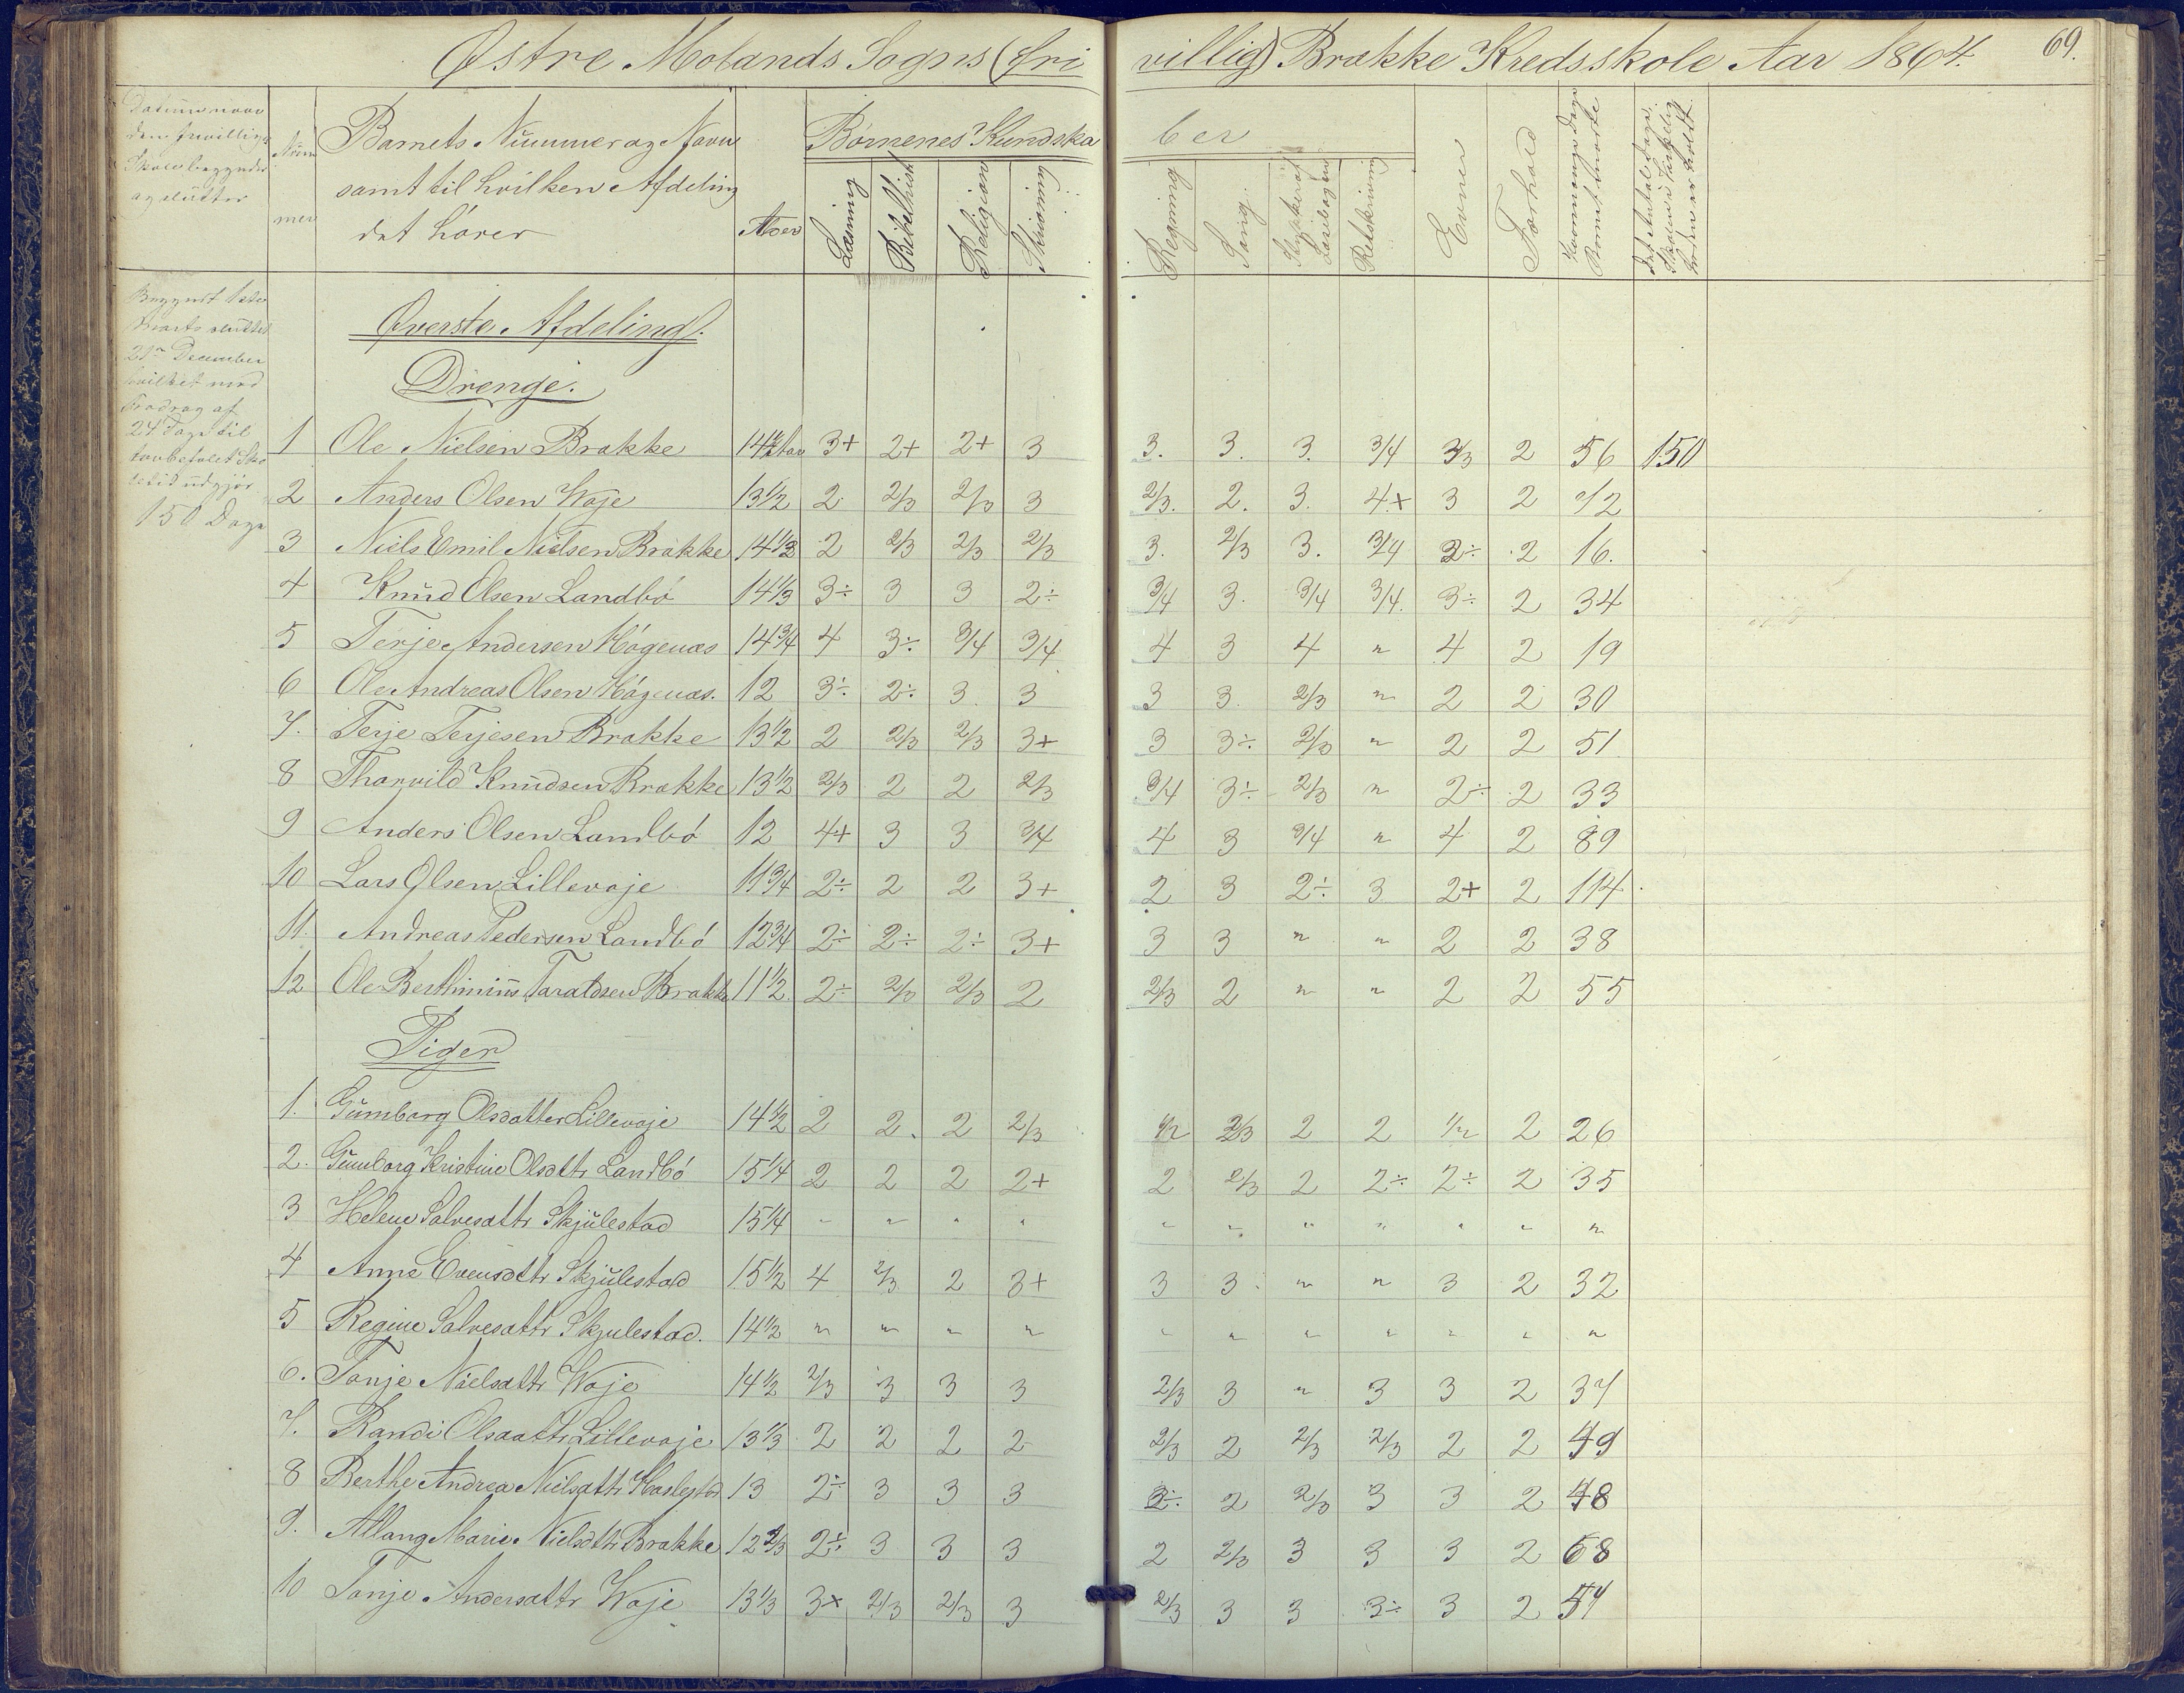 Østre Molands Sogns (fri villig) Brække Kredsskole Aar 1864. 69.
Datum naar
den frivillige
Skole begynder
og slutter
Num
mer
Barnets Nummer og Navn
samt til hvilken Afdeling
det hører
Alder
Børnenes Kundska ber
Læsning
Bibelhist
Religion
Skrivning
Regning
Sang.
Stykker af
Læsebogen
Retskrivning
Evner
Forhold
Hvormange Dage
Barnet mødte
Det Antal Dage,
Skolen i Virkelig
heden er holdt
Begyndt 1ste
Marts sluttet
21de December
hvilket med
Fradrag af
24 Dage til
lovbefalet Sko
letid udgjør
150 Dage
Øverste Afdeling.
Drenge.
1 Ole Nielsen Brække 14 3+ 2+ 2+ 3 3. 3. 3. 3/4 3 2 56 150
2 Anders Olsen Waje 13 1/2 2 2/3 2/3 3 2/3. 2. 3. 4+ 3 2 72
3 Niels Emil Nielsen Brække 14 1/3 2 2/3 2/3 2/3 3. 2/3 3. 3/4 2÷ 2 16.
4 Knud Olsen Landbö 14 1/3 3÷ 3 3 2÷ 3/4 3. 3/4 3/4. 3÷ 2 34
5 Terje Andersen Högenæs 14 3/4 4 3÷ 3/4 3/4 4 3 4 " 4 2 19
6 Ole Andreas Olsen Högenæs. 12 3÷ 2÷ 3 3 3 3. 2/3 " 2 2 30
7. Terje Terjesen Brække 13 1/2 2 2/3 2/3 3+ 3 3÷ 2/3 " 2 2 51
8 Thorvild Knudsen Brække 13 1/2 2/3 2 2 2/3 3/4 3÷ 2/3 " 2÷ 2 33
9 Anders Olsen Landbö 12 4+ 3 3 3/4 4 3 3/4 " 4 2 89
10 Lars Olsen Lillevaje 11 3/4 2÷ 2 2 3+ 2 3 2÷ 3 2+ 2 114
11. Andreas Pedersen Landbö 12 3/4 2÷ 2÷ 2÷ 3+ 3 3 " " 2 2 38
12 Ole Berthinius Taraldsen Brække 11 1/2 2÷ 2/3 2/3 2 2/3 2 " " 2 2 55
Piger
1. Gumborg Olsdatter Lillevaje 14 1/2 2 2. 2 2/3 1/2 2/3 2 2 1/2 2 26
2. Gumborg Kristine Olsdtr Landbö 15 1/4 2 2 2 2+ 2 2/3 2 2÷ 2÷ 2 35
3 Helene Salvesdttr Skjulestad 15 1/4 " " " " " " " " " " "
4 Anne Evensdttr Skjulestad 15 1/2 4 2/3 2 3+ 3 3 " " 3 2 32
5 Regine Salvesdttr Skjulestad. 14 1/2 " " " " " " " " " " "
6. Tonje Nielsdttr Waje 14 1/2 2/3 3 3 3 2/3 3 " 3 3 2 37
7. Randi Olsdattr Lillevaje 13 1/3 2 2 2 2 2/3 2 2/3 2/3 2 2 49
8 Berthe Andrea Nielsdttr Haslestad 13 2÷ 3 3 3 3÷. 2 2/3 3 3 2 48
9. Allang Marie Nielsdttr Brække 12 2/3 2÷ 3 3 3 2 2/3 3 3 3 2 68
10 Tonje Andersdttr Waje 13 1/3 3+ 2/3 2/3 3 2/3 3 3 3÷ 3 2 54